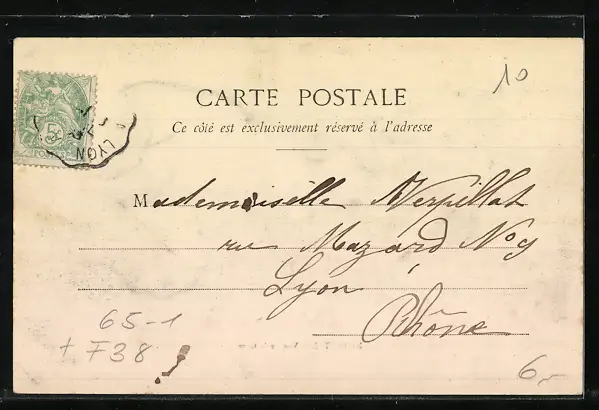 10
CARTE POSTALE
Ce côté est exclusivement réservé à l'adresse
5
LYON
Mademoiselle Verpillat
rue Mazard No 9
Lyon
Rhône
65-1
+ F38
6,-